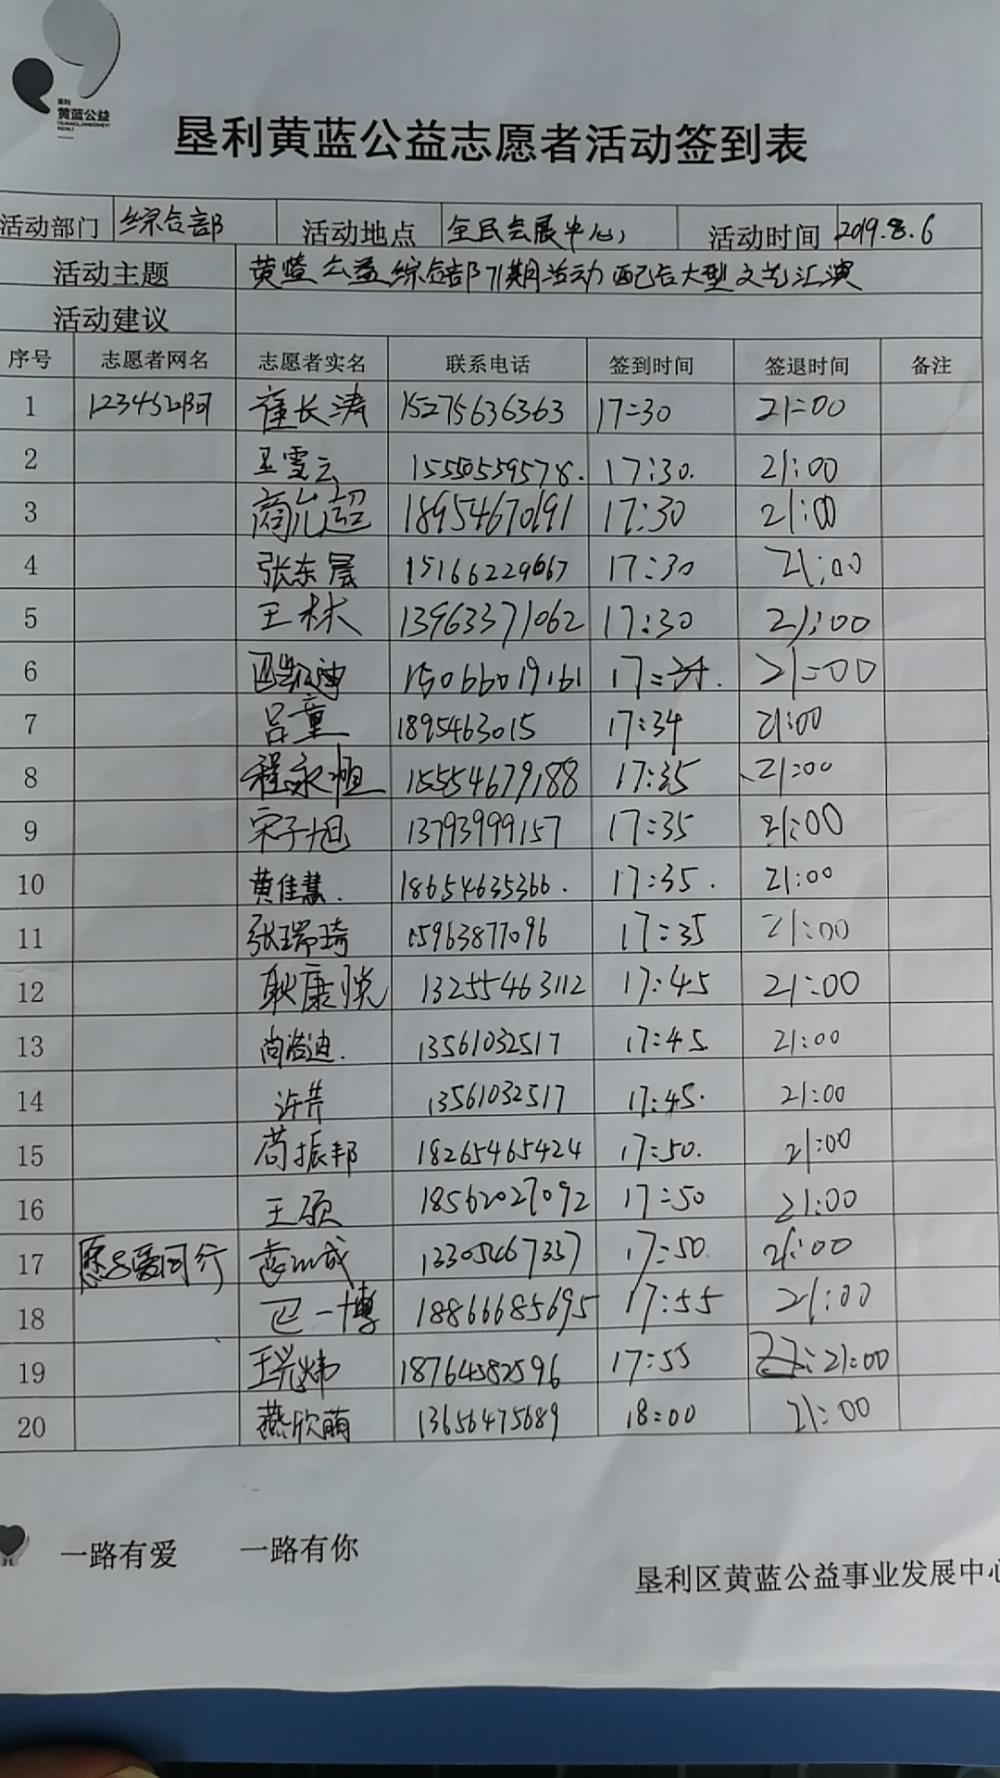 垦利
黄蓝公益
垦利黄蓝公益志愿者活动签到表
活动部门 综合部 活动地点 全民会展中心 活动时间 2019.8.6
活动主题 黄蓝公益综合部71期活动 配合大型文艺汇演
活动建议
序号 志愿者网名 志愿者实名 联系电话 签到时间 签退时间 备注
1 123452呵 崔长涛 15275636363 17:30 21:00
2 王雪云 15550559578. 17:30. 21:00
3 商允超 18954670191 17:30 21:00
4 张东晨 15166229667 17:30 21:00
5 王林 13963371062 17:30 21:00
6 15066019161 17: 21:00
7 吕童 1895463015 17:34 21:00
8 程永恒 15554679188 17:35 21:00
9 宋子旭 13793999157 17:35 21:00
10 黄佳慧. 18654635366. 17:35. 21:00
11 张瑞琦 15963877096 17:35 21:00
12 耿康悦 13255463112 17:45 21:00
13 尚浩迪. 13561032517 17:45 21:00
14 许芹 13561032517 17:45. 21:00
15 苟振邦 18265465424 17:50. 21:00
16 王硕 18562027092 17:50 21:00
17 愿与爱同行 13305467337 17:50. 21:00
18 巴一博 18866685695 17:55 21:00
19 18764582596 17:55 21:00
20 燕欣萌 13656475689 18:00 21:00
一路有爱 一路有你
垦利区黄蓝公益事业发展中心